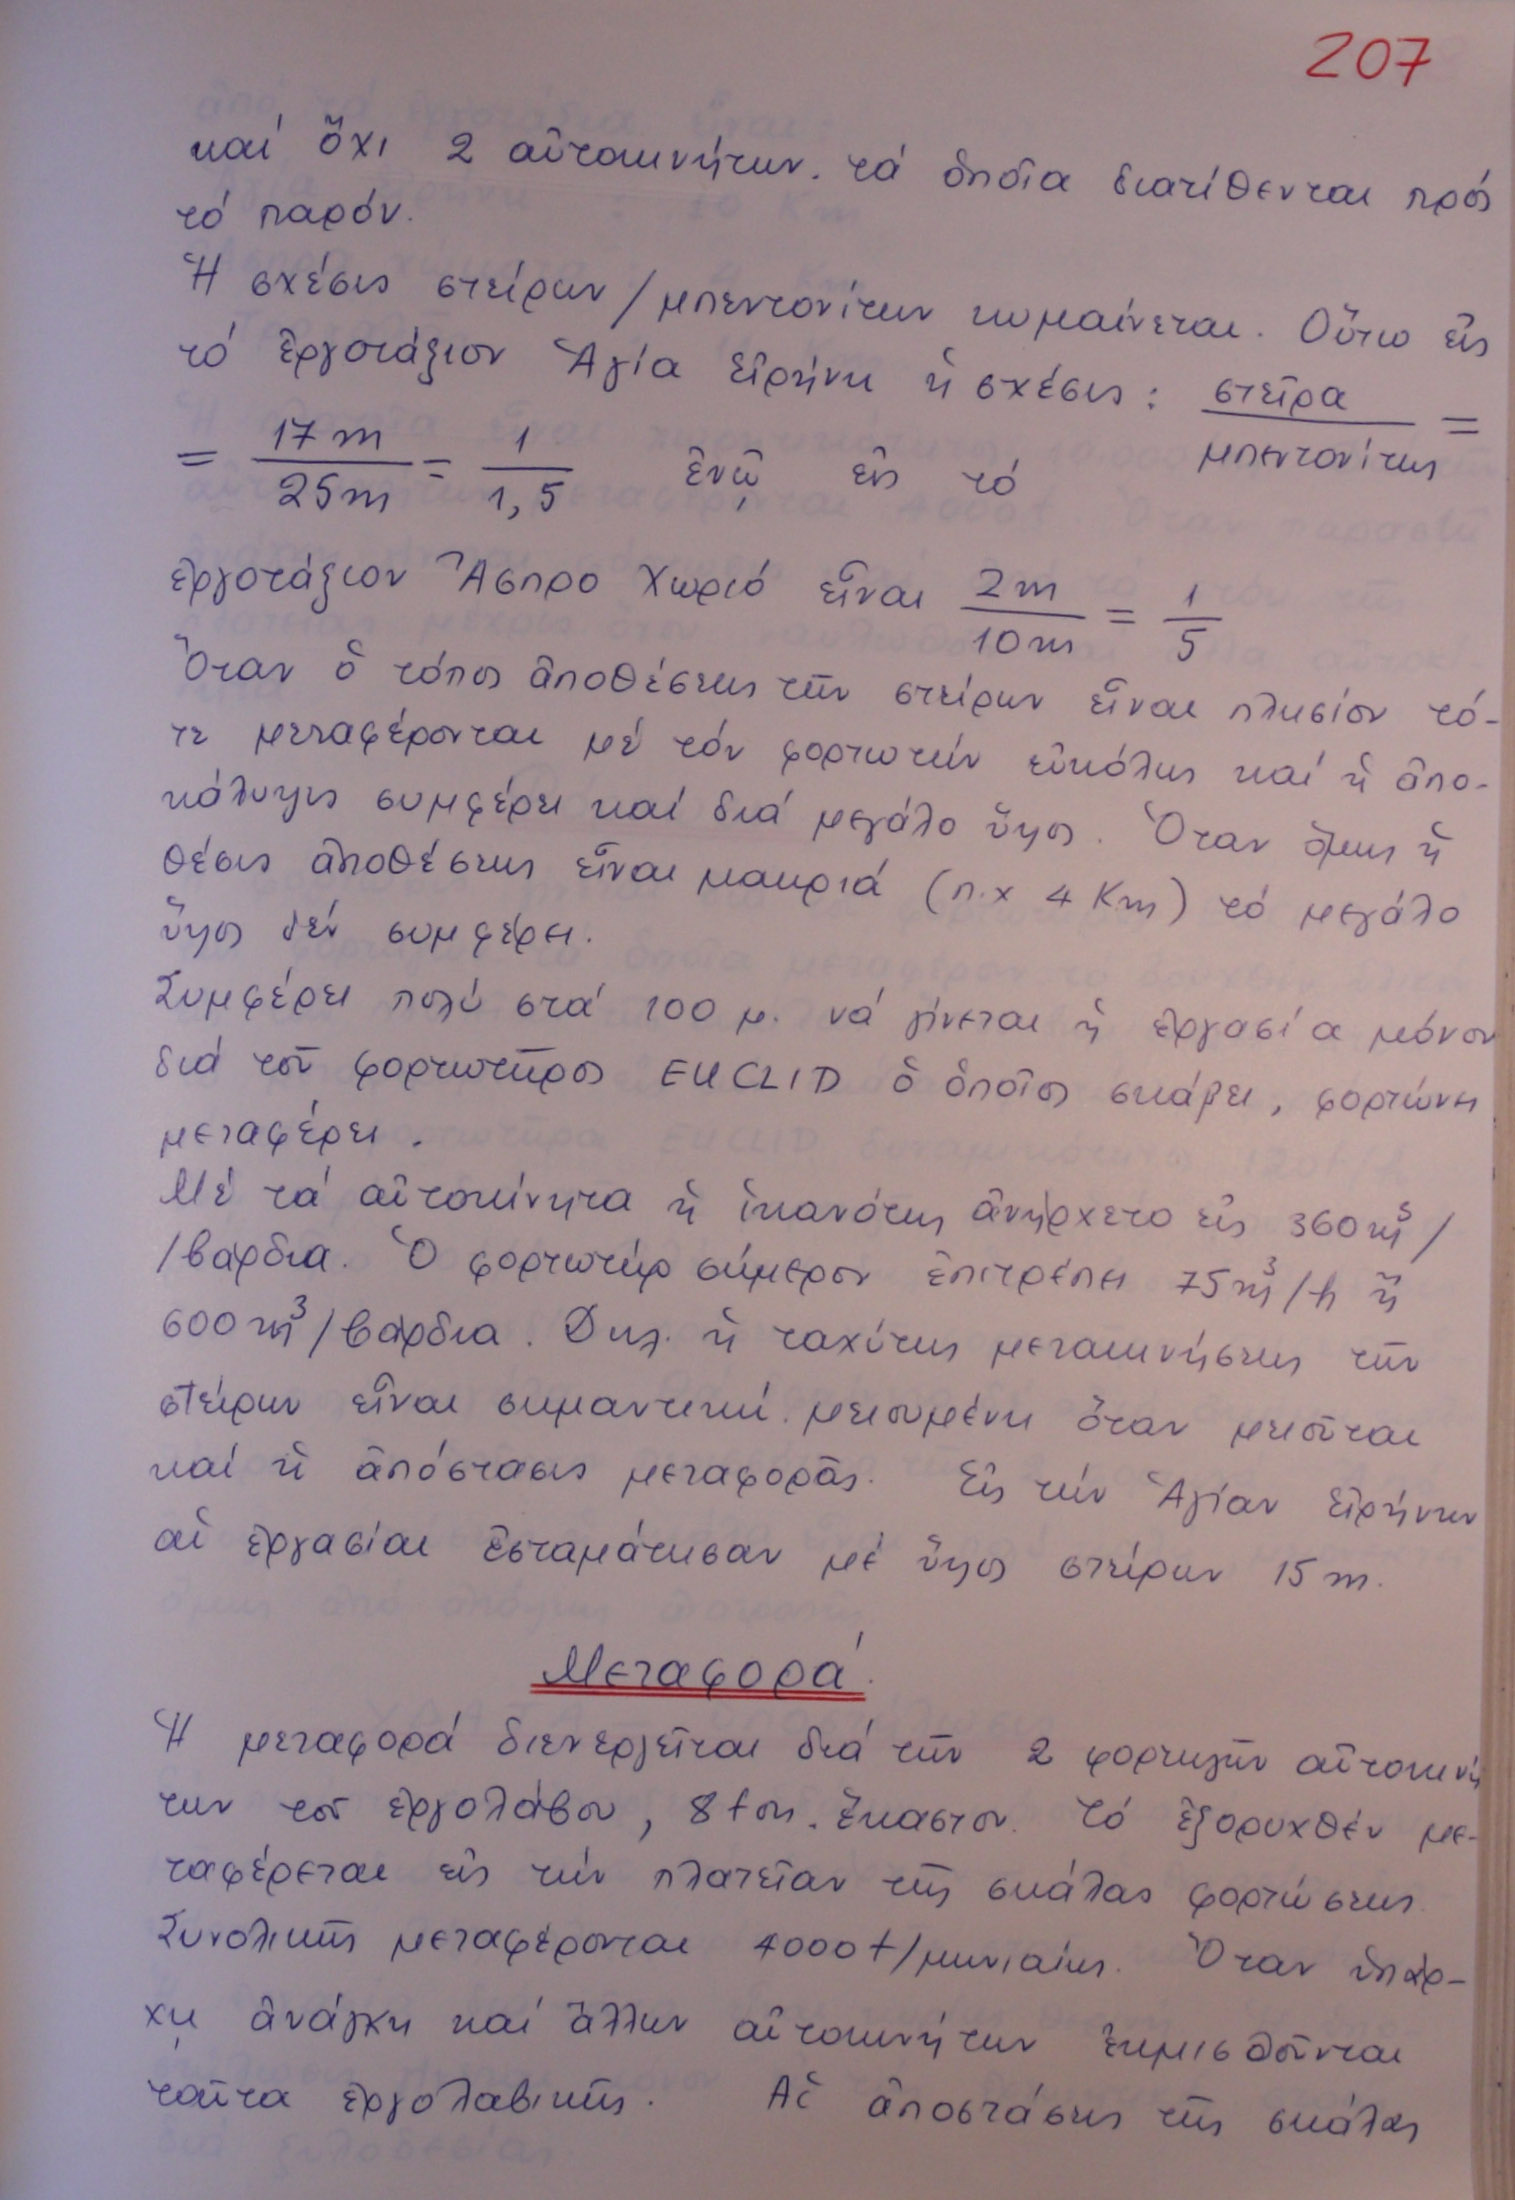 207
καί ὄχι 2 αὐτοκινήτων. τά ὁποῖα διατίθενται πρός
τό παρόν.
Ἡ σχέσις στείρων/μπεντονίτων κυμαίνεται. Οὕτω εἰς
τό ἐργοτάξιον Ἁγία Εἰρήνη ἡ σχέσις: στεῖρα / μπεντονίτης =
= 17 m / 25 m = 1 / 1,5 ἐνῷ εἰς τό
ἐργοτάξιον Ἄσπρο Χωριό εἶναι 2 m / 10 m = 1 / 5
Ὅταν ὁ τόπος ἀποθέσεως τῶν στείρων εἶναι πλησίον τό-
τε μεταφέρονται μέ τόν φορτωτήν εὐκόλως καί ἡ ἀπο-
κάλυψις συμφέρει καί διά μεγάλο ὕψος. Ὅταν ὅμως ἡ
θέσις ἀποθέσεως εἶναι μακριά (π.χ 4 Km) τό μεγάλο
ὕψος δέν συμφέρει.
Συμφέρει πολύ στά 100 μ. νά γίνεται ἡ ἐργασία μόνον
διά τοῦ φορτωτῆρος EUCLID ὁ ὁποῖος σκάβει, φορτώνει
μεταφέρει.
Μέ τά αὐτοκίνητα ἡ ἱκανότης ἀνήρχετο εἰς 360 m³/
/βάρδια. Ὁ φορτωτήρ σήμερον ἐπιτρέπει 75 m³/h ἤ
600 m³/βάρδια. Δηλ. ἡ ταχύτης μετακινήσεως τῶν
στείρων εἶναι σημαντική. μειουμένη ὅταν μειοῦται
καί ἡ ἀπόστασις μεταφορᾶς. Εἰς τήν Ἁγίαν Εἰρήνην
αἱ ἐργασίαι ἐσταμάτησαν μέ ὕψος στείρων 15 m.
Μεταφορά.
Ἡ μεταφορά διενεργεῖται διά τῶν 2 φορτηγῶν αὐτοκινή
των τοῦ ἐργολάβου, 8 ton. ἕκαστον. Τό ἐξορυχθέν με-
ταφέρεται εἰς τήν πλατεῖαν τῆς σκάλας φορτώσεως
Συνολικῶς μεταφέρονται 4000 t/μηνιαίως. Ὅταν ὑπάρ-
χῃ ἀνάγκη καί ἄλλων αὐτοκινήτων ἐκμισθοῦνται
ταῦτα ἐργολαβικῶς. Αἱ ἀποστάσεις τῆς σκάλας